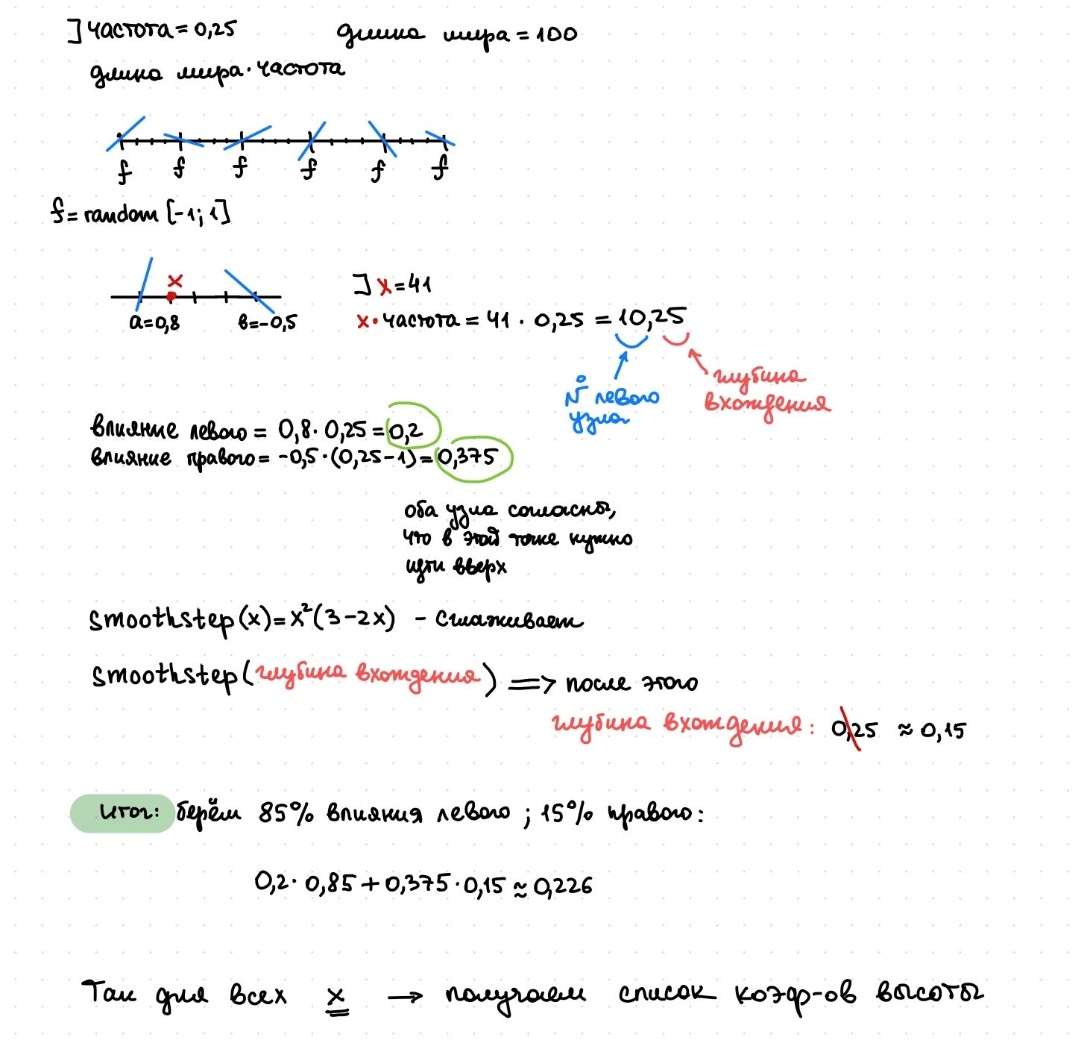 ] частота = 0,25 длина мира = 100
длина мира · частота
f f f f f f
f = random [-1; 1]
x
a=0,8 в=-0,5
] x = 41
x · частота = 41 · 0,25 = 10,25
№ левого узла
глубина вхождения
влияние левого = 0,8 · 0,25 = 0,2
влияние правого = -0,5 · (0,25-1) = 0,375
оба узла согласны,
что в этой точке нужно
идти вверх
smoothstep(x) = x²(3-2x) - сглаживает
smoothstep(глубина вхождения) => после этого
глубина вхождения: 0,25 ≈ 0,15
итог: берём 85% влияния левого ; 15% правого:
0,2 · 0,85 + 0,375 · 0,15 ≈ 0,226
Так для всех x → получаем список коэф-ов высоты